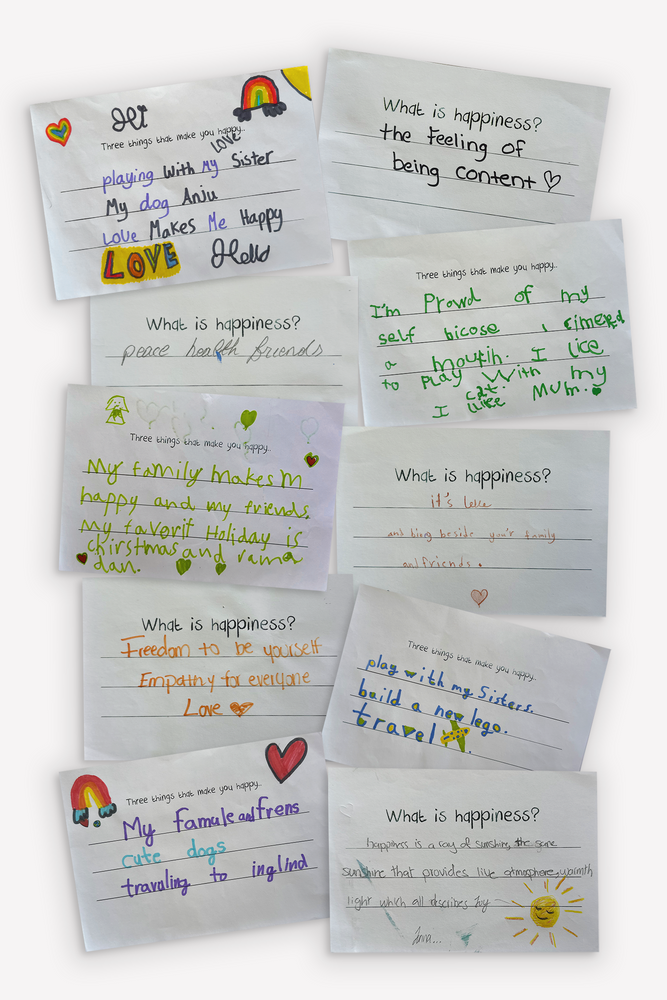 Hi
Three things that make you happy..
Love
playing With My Sister
My dog Anju
Love Makes Me Happy
LOVE Hello
What is happiness?
the feeling of
being content
What is happiness?
peace health friends
Three things that make you happy..
I'm Prowd of my
self bicose i
a mouth. I lice
to play With my
cat. Mum.
I like
Three things that make you happy..
My family makes m
happy and my friends.
My favorit Holiday is
chirstmas and rama
dan.
What is happiness?
it's love
and bing beside your family
and friends.
What is happiness?
Freedom to be yourself
Empathy for everyone
Love
Three things that make you happy..
play with my Sisters.
build a new lego.
travel
Three things that make you happy..
My Famule and frens
cute dogs
travaling to inglind
What is happiness?
happiness is a ray of sunshine, the same
sunshine that provides live atmosphere, warmth
light which all describes Joy